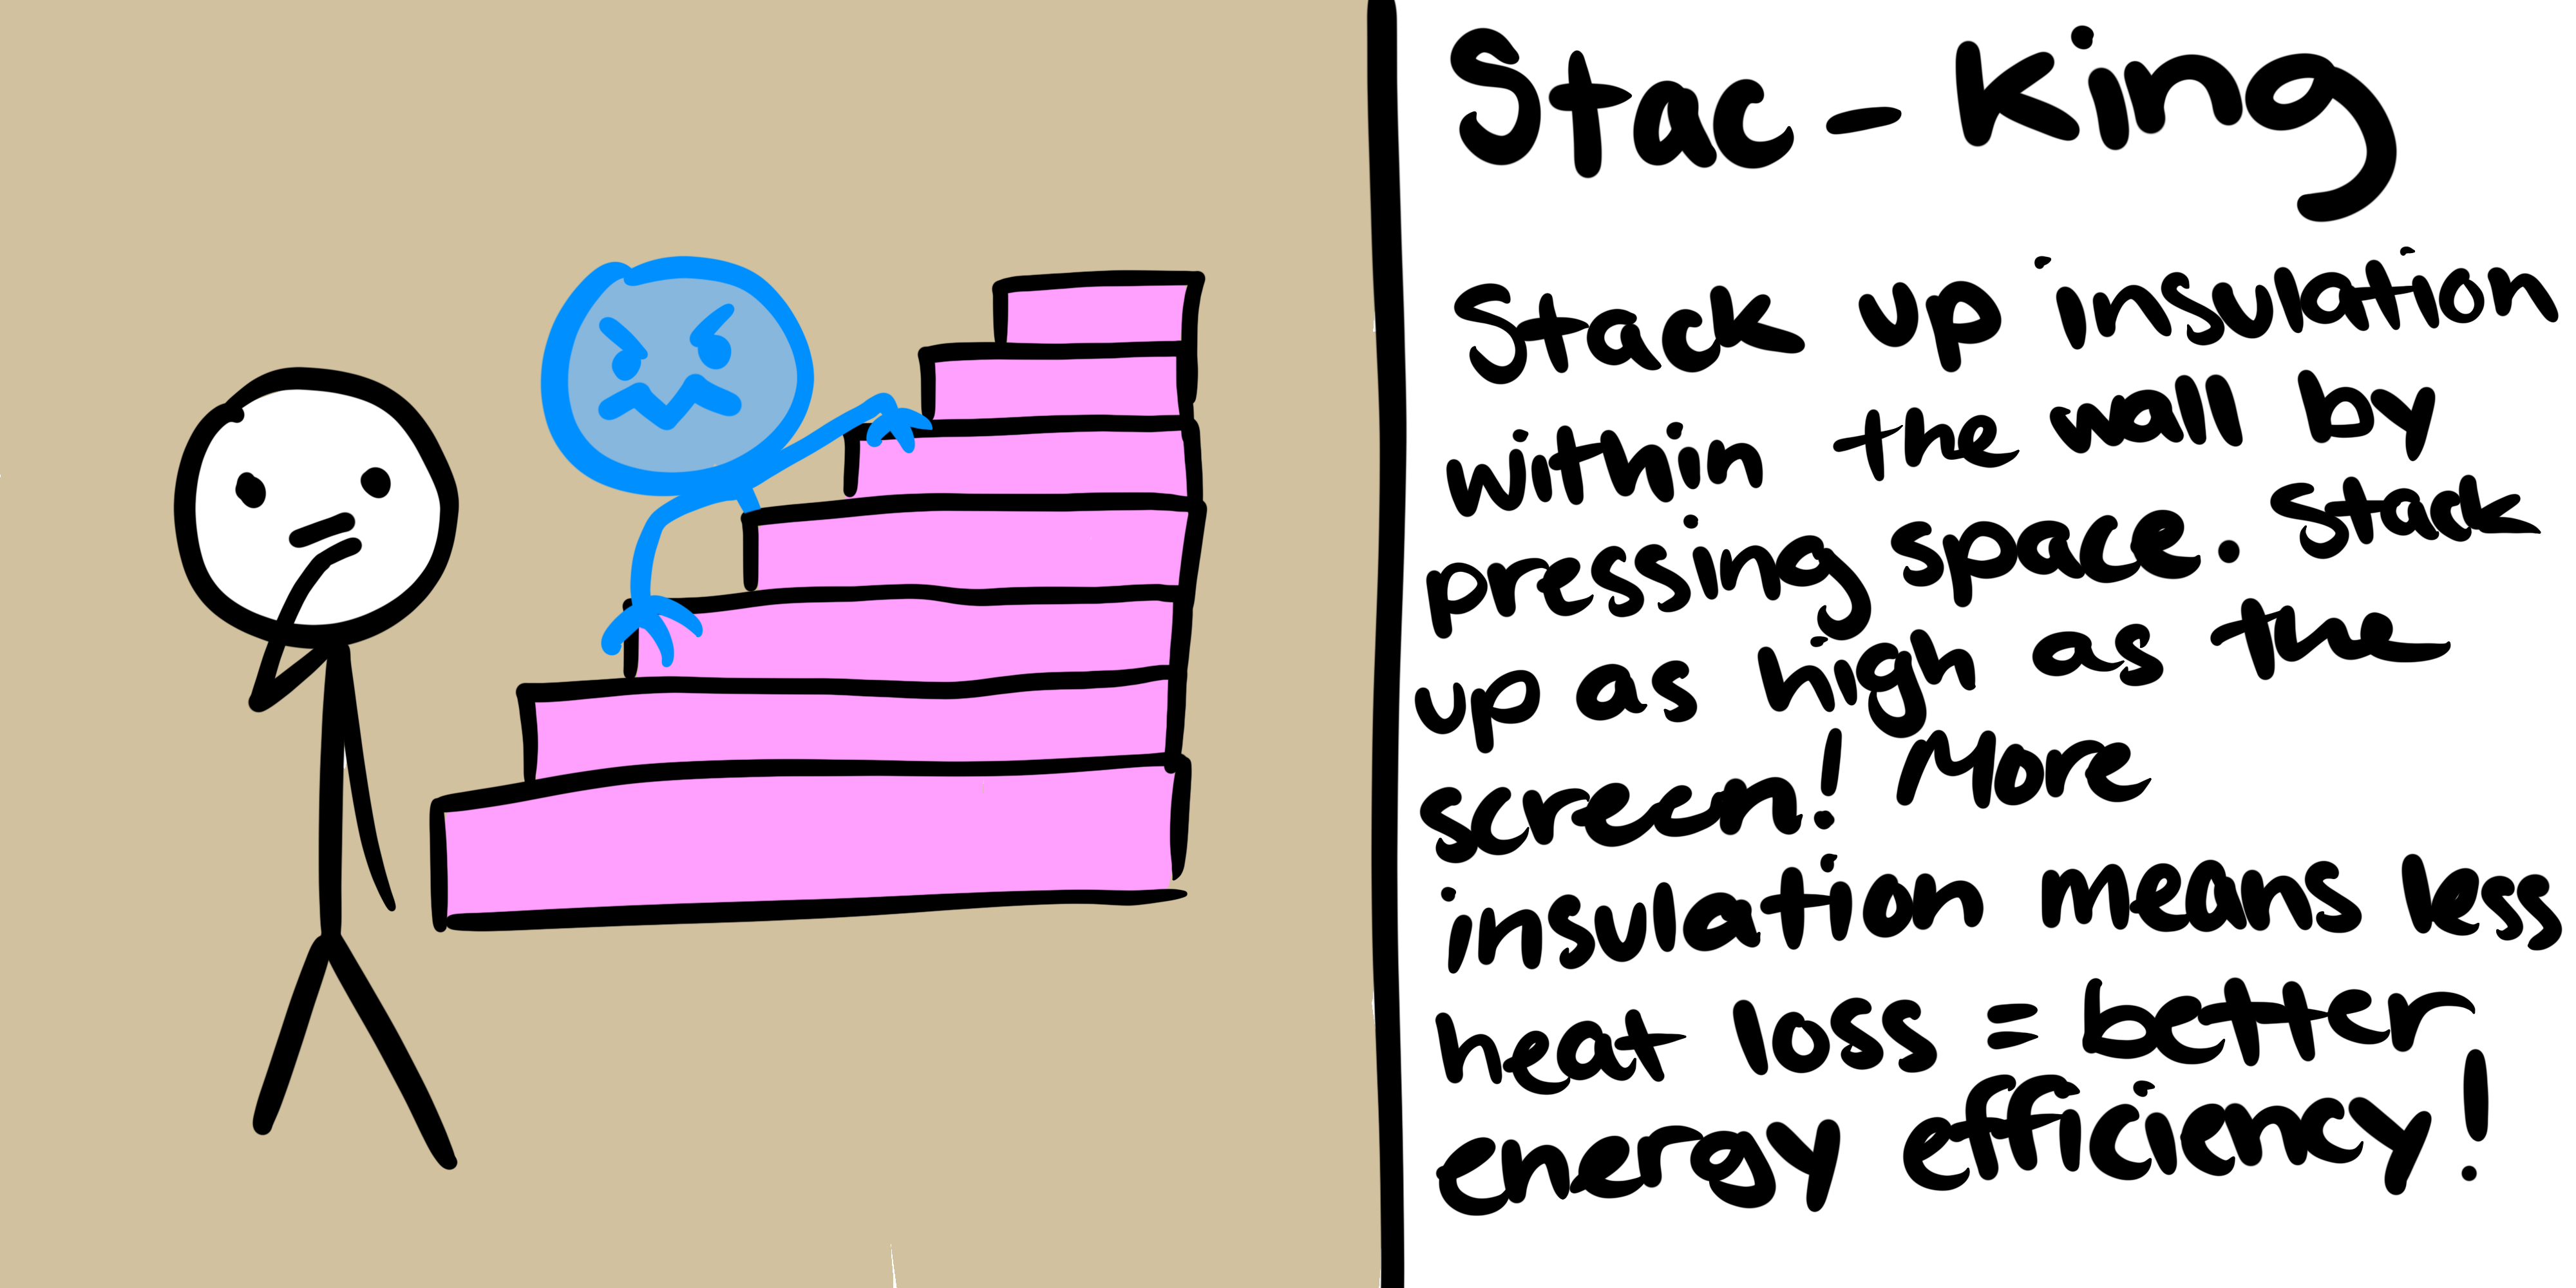 Stac-King
Stack up insulation
within the wall by
pressing space. Stack
up as high as the
screen! More
insulation means less
heat loss = better
energy efficiency!